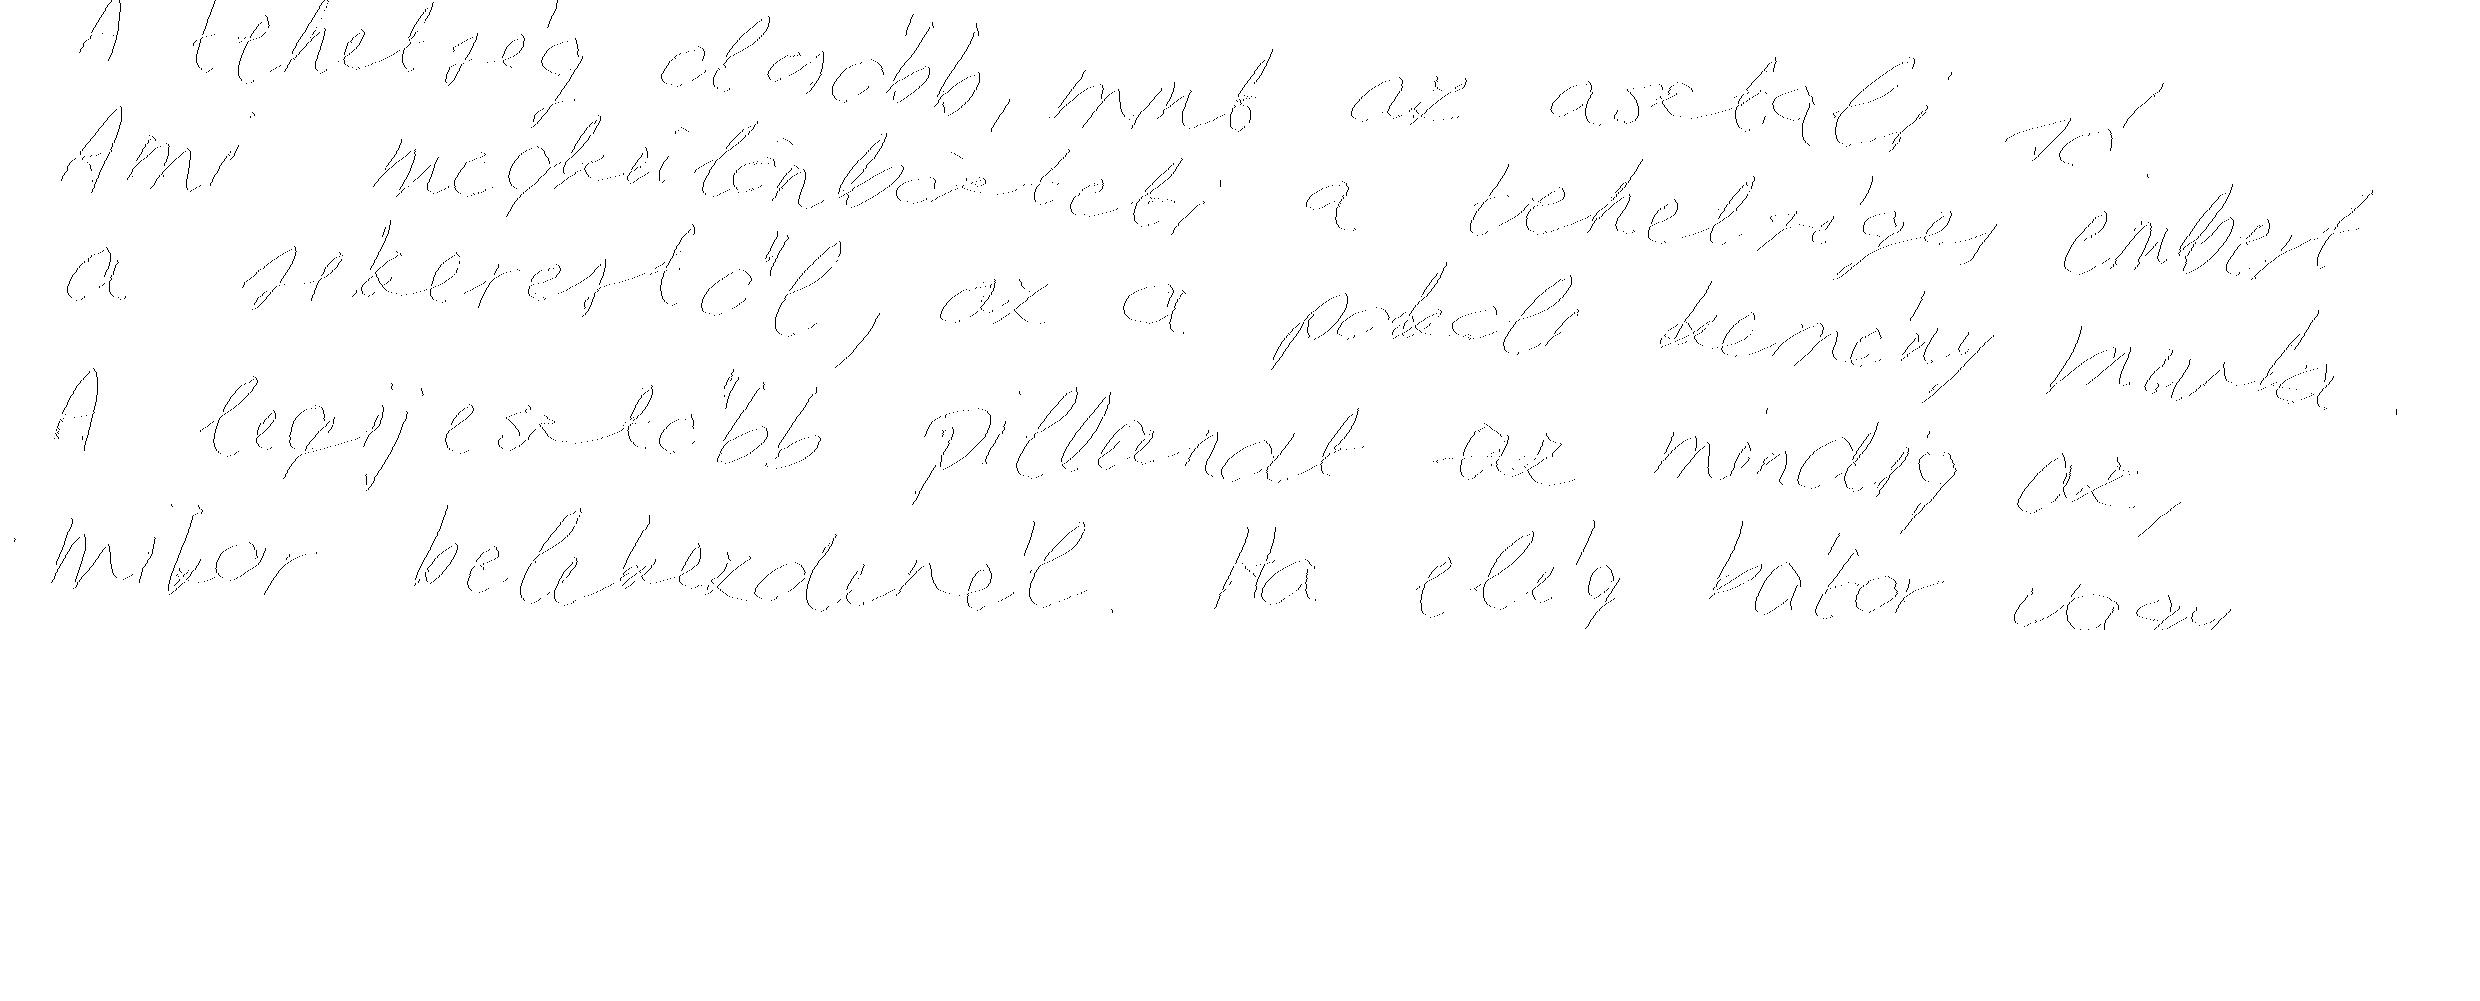 A tehetség olcsóbb, mint az asztali só.
Ami megkülönbözteti a tehetséges embert
a sikerestől, az a pokoli kemény munka.
A legijesztőbb pillanat az mindig az,
mikor belekezdenél. Ha elég bátor vagy